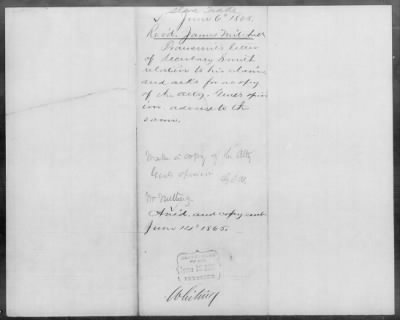 Slave Trade
June 6" 1865.
Revd. James Mitchell
Transmits letter
of Secretary Smith
relation to his claim
and asks for a copy
of the Atty. Genls opin
ion adverse to the
same.
Make a copy of the Atty
Genls opinion
Mr
Ansd. and copy sent
June 14" 1865.
Whiting